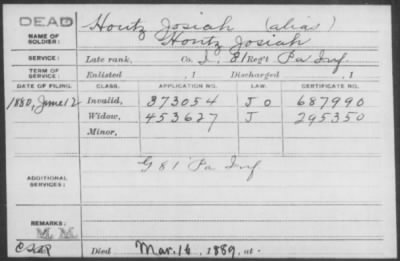 DEAD
NAME OF SOLDIER:
Hontz Josiah (alias)
Hontz Josiah
SERVICE:
Late rank, Co. I, 81 Reg't Pa Inf.
TERM OF SERVICE:
Enlisted , 1 Discharged , 1
DATE OF FILING. CLASS. APPLICATION NO. LAW. CERTIFICATE NO.
1880, June 12 Invalid, 373054 J O 687990
Widow, 453627 J 295350
Minor,
G 81 Pa Inf
ADDITIONAL SERVICES:
REMARKS:
M. M.
Died Mar. 16, 1889, at